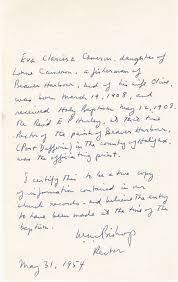 Eva Clarissa Cameron, daughter of
Lorne Cameron, a fisherman of
Beaver Harbour, and of his wife Olive,
was born March 19, 1908, and
received Holy Baptism May 12, 1908.
The Revd E P Hurley, at this time
Rector of the parish of Beaver Harbour,
(Port Dufferin) in the county of Halifax,
was the officiating priest.
I certify this to be a true copy
of information contained in our
church records - and believe the entry
to have been made at the time of the
baptism.
Bishop
Rector
May 31, 1954